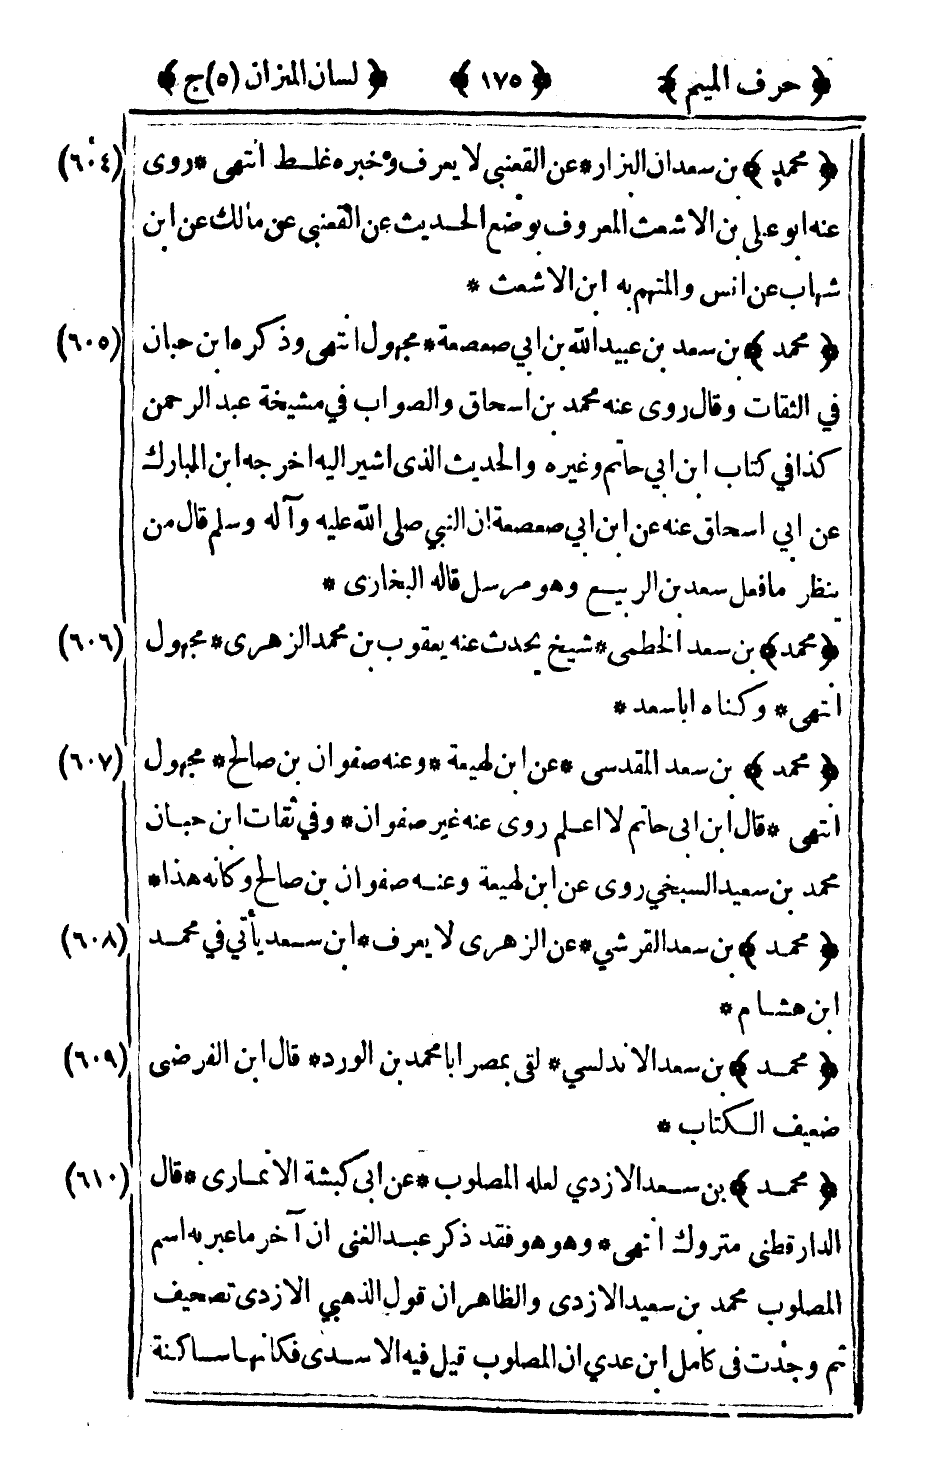 ﴿ حرف الميم ﴾ ﴿ ١٧٥ ﴾ ﴿ لسان الميزان (٥)ج ﴾
﴿ محمد ﴾ بن سعدان البزار * عن القعنبى لا يعرف وخبره غلط انتهى * روى (٦٠٤)
عنه ابو على بن الاشعث المعروف بوضع الحديث عن القعنبى عن مالك عن ابن
شهاب عن انس والمتهم به ابن الاشعث *
﴿ محمد ﴾ بن سعد بن عبيد الله بن ابي صعصعة * مجهول انتهى وذكره ابن حبان (٦٠٥)
في الثقات وقال روى عنه محمد بن اسحاق والصواب في مشيخة عبد الرحمن
كذا في كتاب ابن ابي حاتم وغيره والحديث الذى اشير اليه اخرجه ابن المبارك
عن ابي اسحاق عنه عن ابن ابي صعصعة ان النبي صلى الله عليه وآله وسلم قال من
ينظر ما فعل سعد بن الربيع وهو مرسل قاله البخارى *
﴿ محمد ﴾ بن سعد الخطمى * شيخ يحدث عنه يعقوب بن محمد الزهرى * مجهول (٦٠٦)
انتهى * وكناه ابا سعد *
﴿ محمد ﴾ بن سعد المقدسى * عن ابن لهيعة * وعنه صفوان بن صالح * مجهول (٦٠٧)
انتهى * قال ابن ابى حاتم لا اعلم روى عنه غير صفوان * وفي ثقات ابن حبان
محمد بن سعيد السبخي روى عن ابن لهيعة وعنه صفوان بن صالح وكانه هذا *
﴿ محمد ﴾ بن سعد القرشي * عن الزهرى لا يعرف * ابن سعد يأتي في محمد (٦٠٨)
ابن هشام *
﴿ محمد ﴾ بن سعد الاندلسي * لقى بمصر ابا محمد بن الورد * قال ابن الفرضى (٦٠٩)
ضعيف الكتاب *
﴿ محمد ﴾ بن سعد الازدي لعله المصلوب * عن ابى كبشة الانمارى * قال (٦١٠)
الدارقطنى متروك انتهى * وهو هو فقد ذكر عبد الغنى ان آخر ما عبر به اسم
المصلوب محمد بن سعيد الازدى والظاهر ان قول الذهبي الازدى تصحيف
ثم وجدت فى كامل ابن عدي ان المصلوب قيل فيه الاسدى فكانها ساكنة